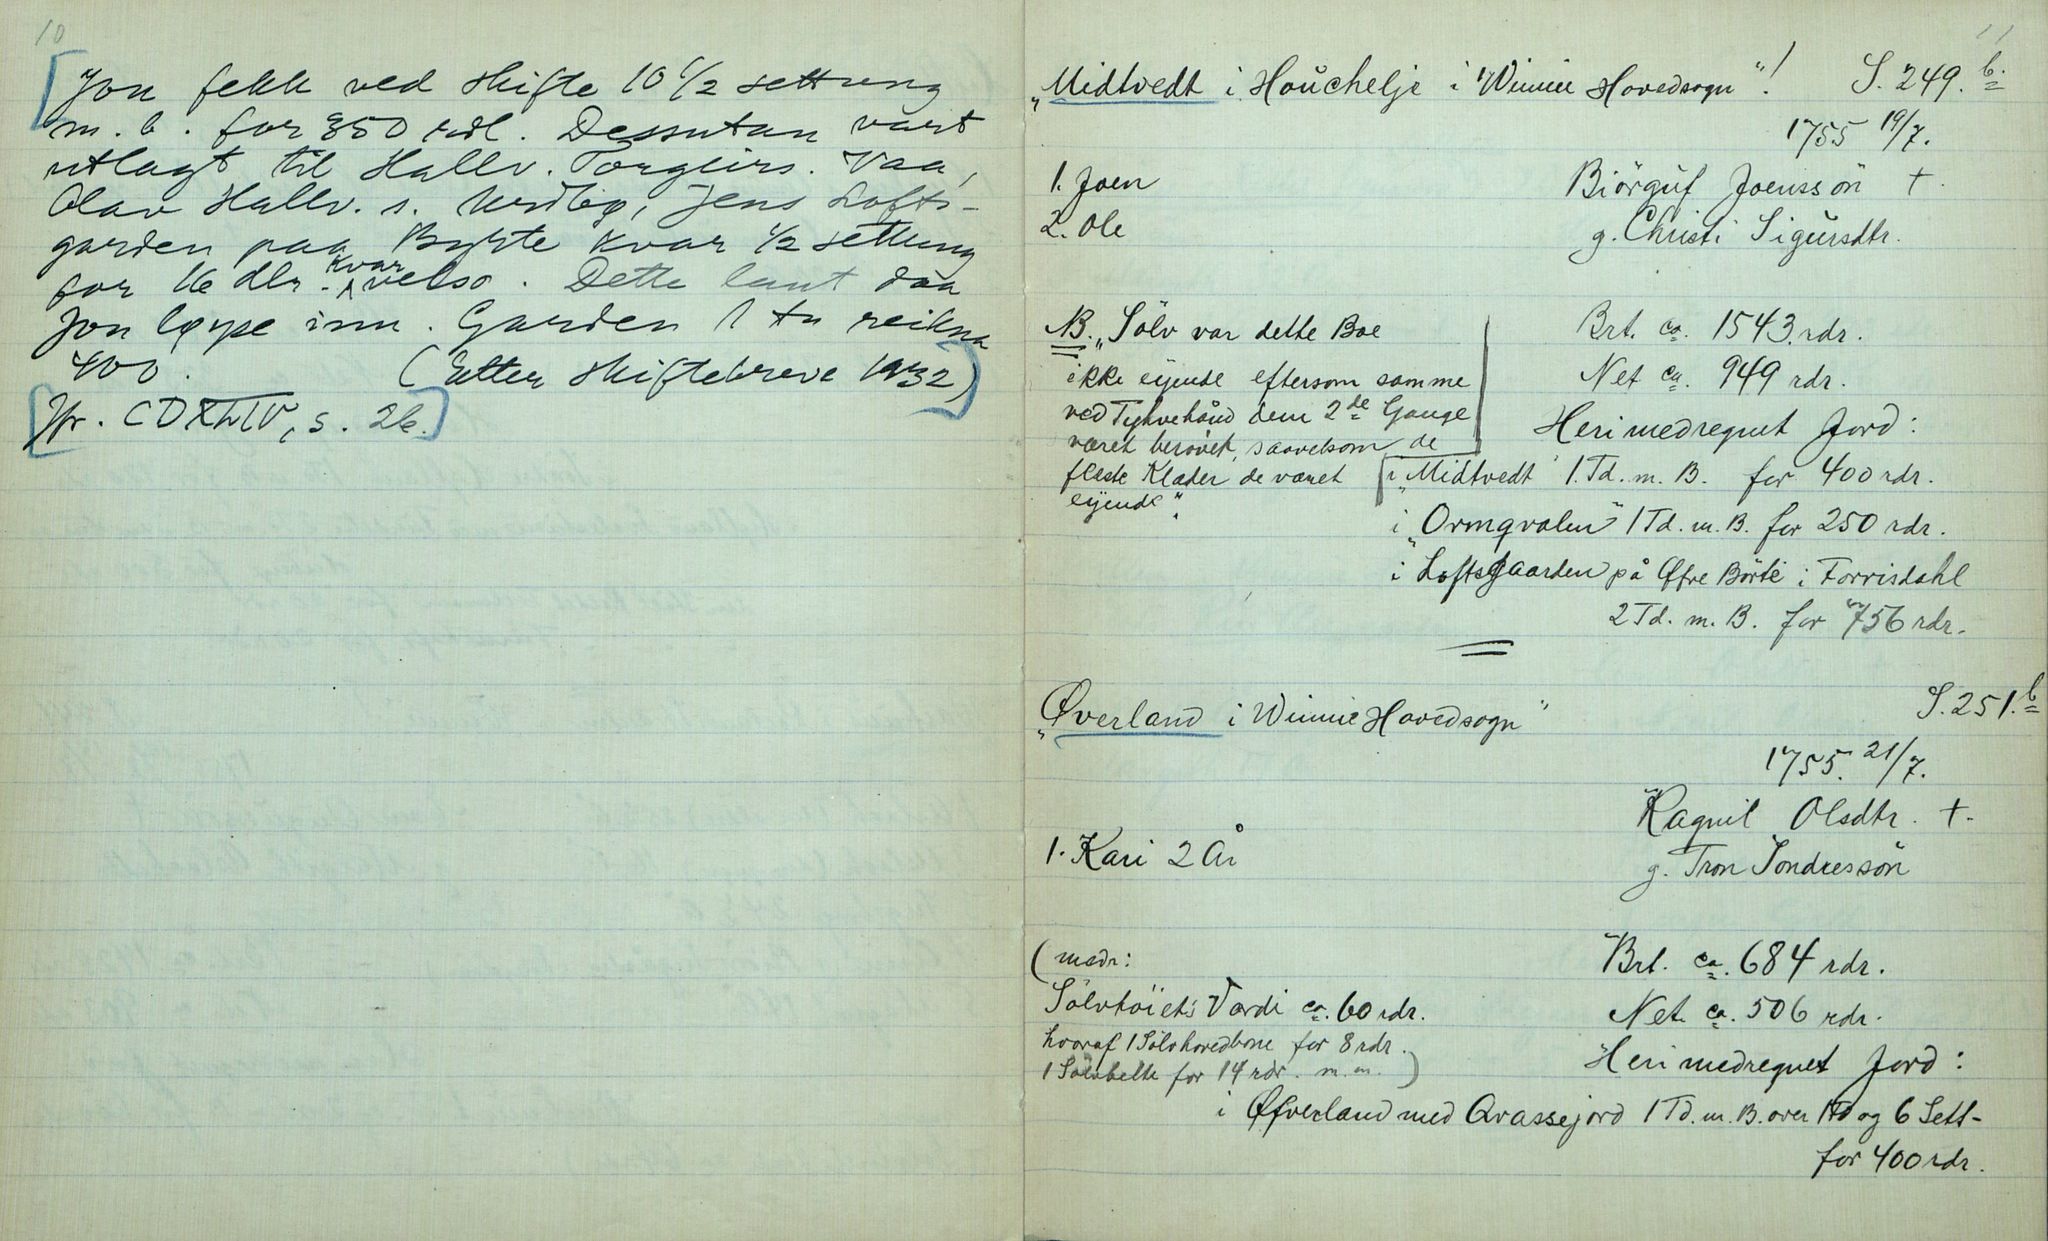 10
[Jon fekk ved skifte 10 1/2 settung
m. b. for 350 rdl. Dessutan vart
utlagt til Hallv. Torgeirs. Vaa,
Olav Hallv. s. jens Lofts-
garden paa Byrte kvar 1/2 settung
for 16 dlr. kvar velso. Dette laut daa
Jon løype inn. Garden 1 tn reikna
400. (Etter skiftebreve 1932)]
[Jfr. s. 26.]
11
"Midtvedt i Houchelje i Winnie Hovedsogn"! S. 249. b.
1755 19/7.
1. Joen Biörguf Joenssön +.
2. Ole g. Christi Sigursdtr.
NB. "Sölv var dette Boe Brt. ca. 1543 rdr.
ikke eyende eftersom samme Net ca. 949 rdr.
ved Tyhvehånd dem 2de Gange Heri medregnet Jord:
været berövet, saavelsom de
fleste Klæder de været i "Midtvedt" 1 Td. m. B. for 400 rdr.
eyende".
i "Ormqvalen" 1 Td. m. B. for 250 rdr.
i "Loftsgaarden på Øfre Börte i Torrisdahl
2 Td. m. B. for 756 rdr.
"Øverland i Winnie Hovedsogn" S. 251. b
1755. 21/7.
Ragnil Olsdtr. +.
1. Kari 2 År g. Tron Söndressön
(medr: Brt. ca. 684 rdr.
Sölvtöiets Værdi ca. 60 rdr. Net. ca. 506 rdr.
hvoraf 1 Sölvhovedbone for 8 rdr.
1 Sölvbelte for 14 rdr. m. m.) Heri medregnet Jord:
i Øfverland med Qvassejord 1 Td. m. B. over 1 Td og 6 Sett-
for 400 rdr.